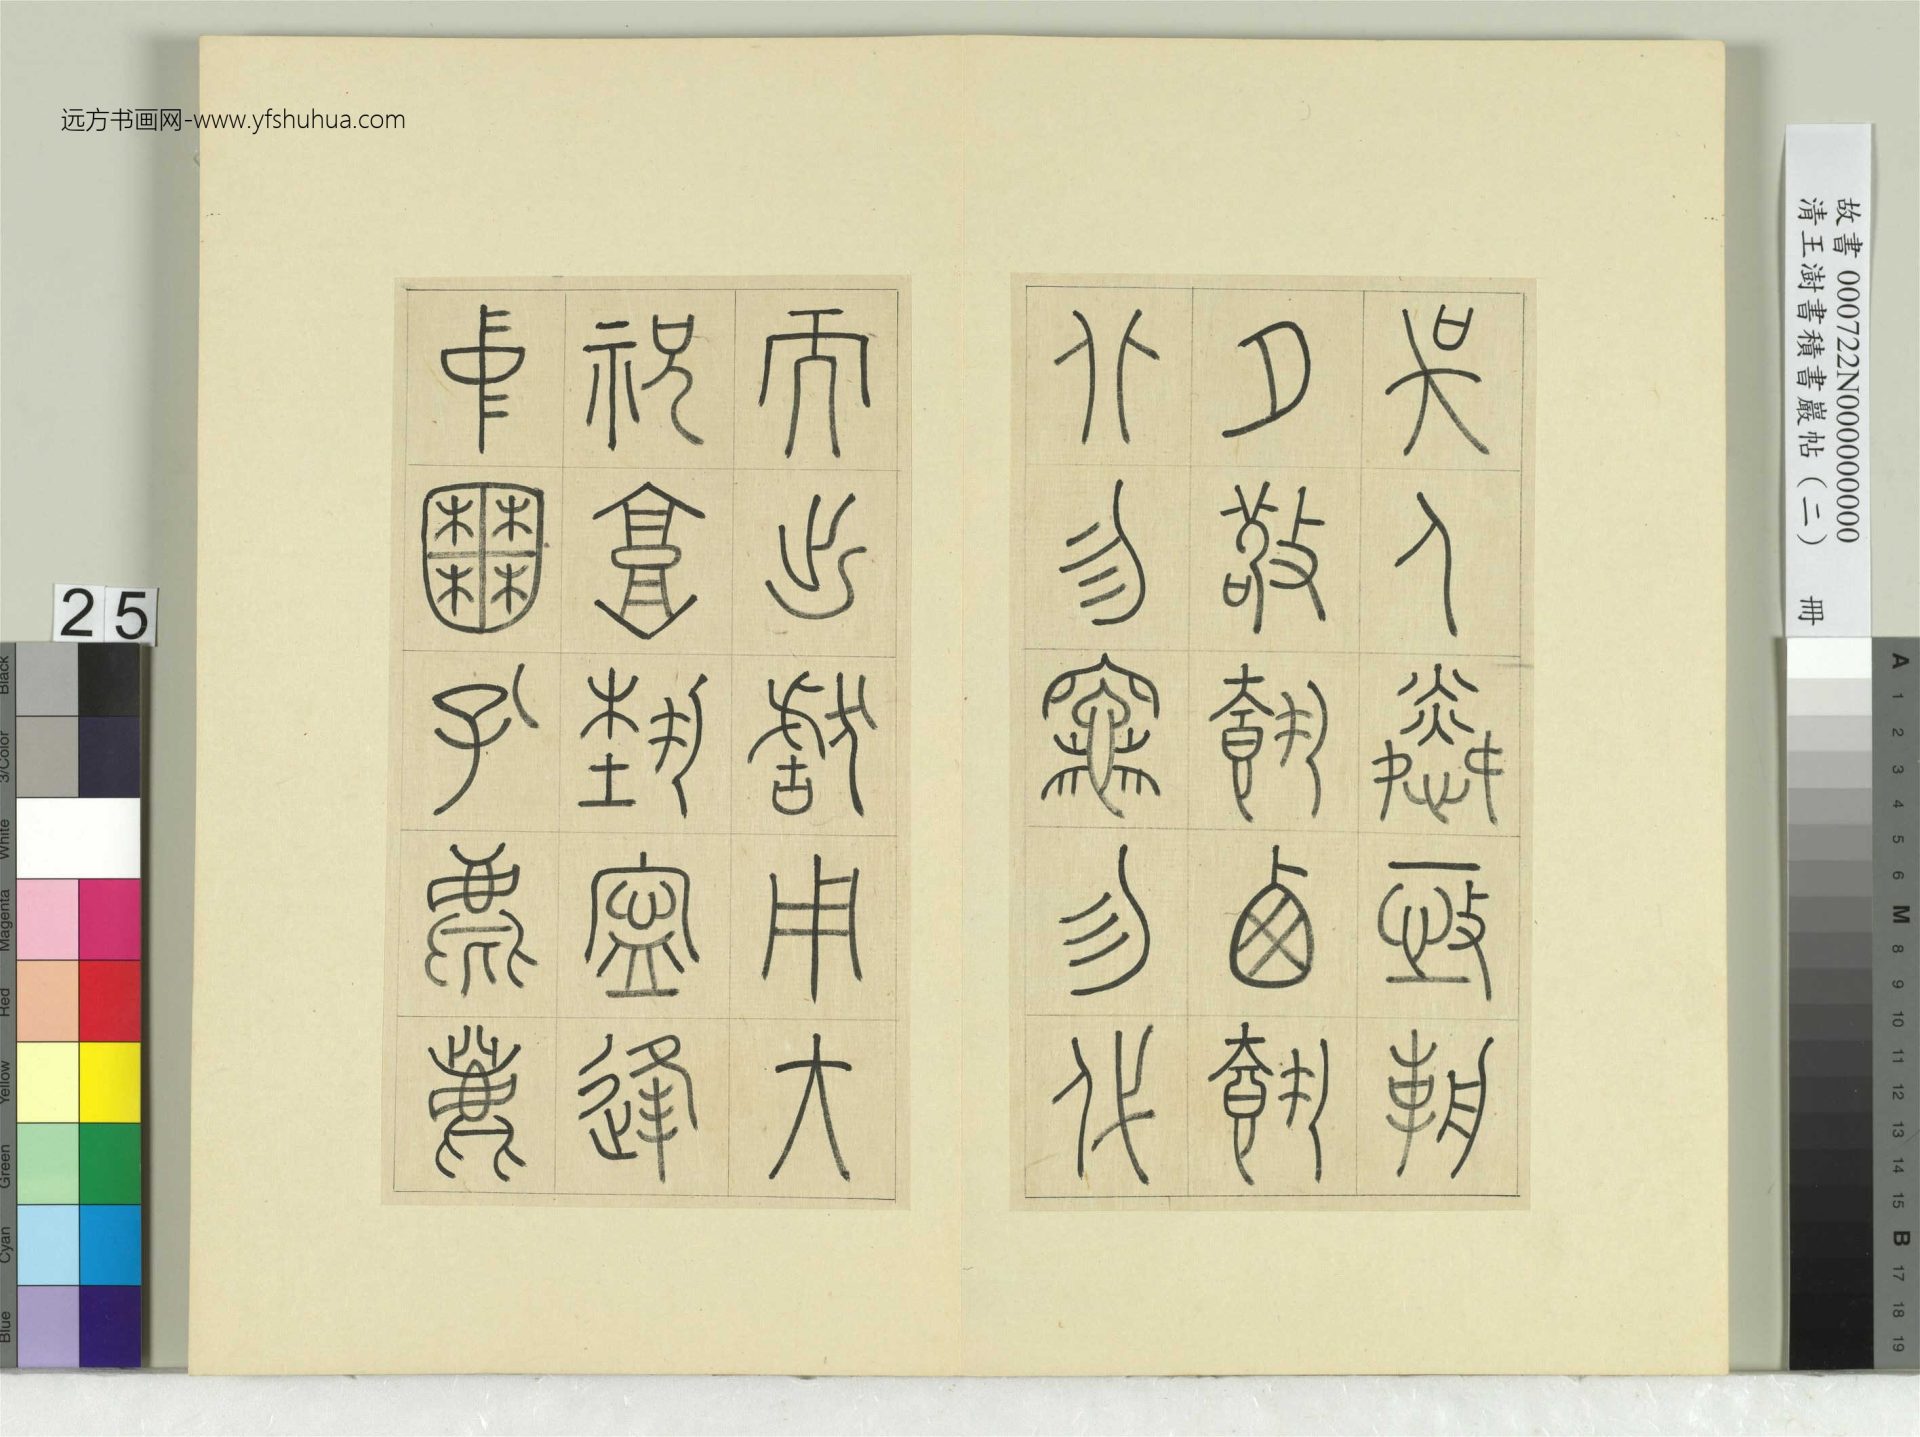 远方书画网-www.yfshuhua.com
故書 000722N000000000
清王澍書積書巖帖（二） 冊
吳人憐亟朝
夕敬𩛥西𩛥
北勿竈勿代
而出獻用大
祝埶寍逢
中囿孔鹿
25
Black
3/Color
White
Magenta
Red
Yellow
Green
Cyan
Blue
A 1 2 3 4 5 6 M 8 9 10 11 12 13 14 15 B 17 18 19